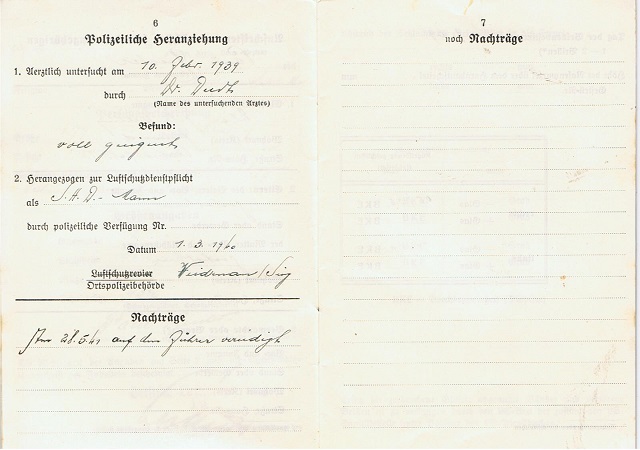 6
Polizeiliche Heranziehung
1. Aerztlich untersucht am 10. Febr. 1939
durch Dr.
(Name des untersuchenden Arztes)
Befund:
voll geeignet
2. Herangezogen zur Luftschutzdienstpflicht
als S.H.D.-Mann
durch polizeiliche Verfügung Nr.
Datum 1. 3. 1940
Luftschutzrevier
Ortspolizeibehörde
Nachträge
Am 28.5.41 auf den Führer vereidigt
7
noch Nachträge